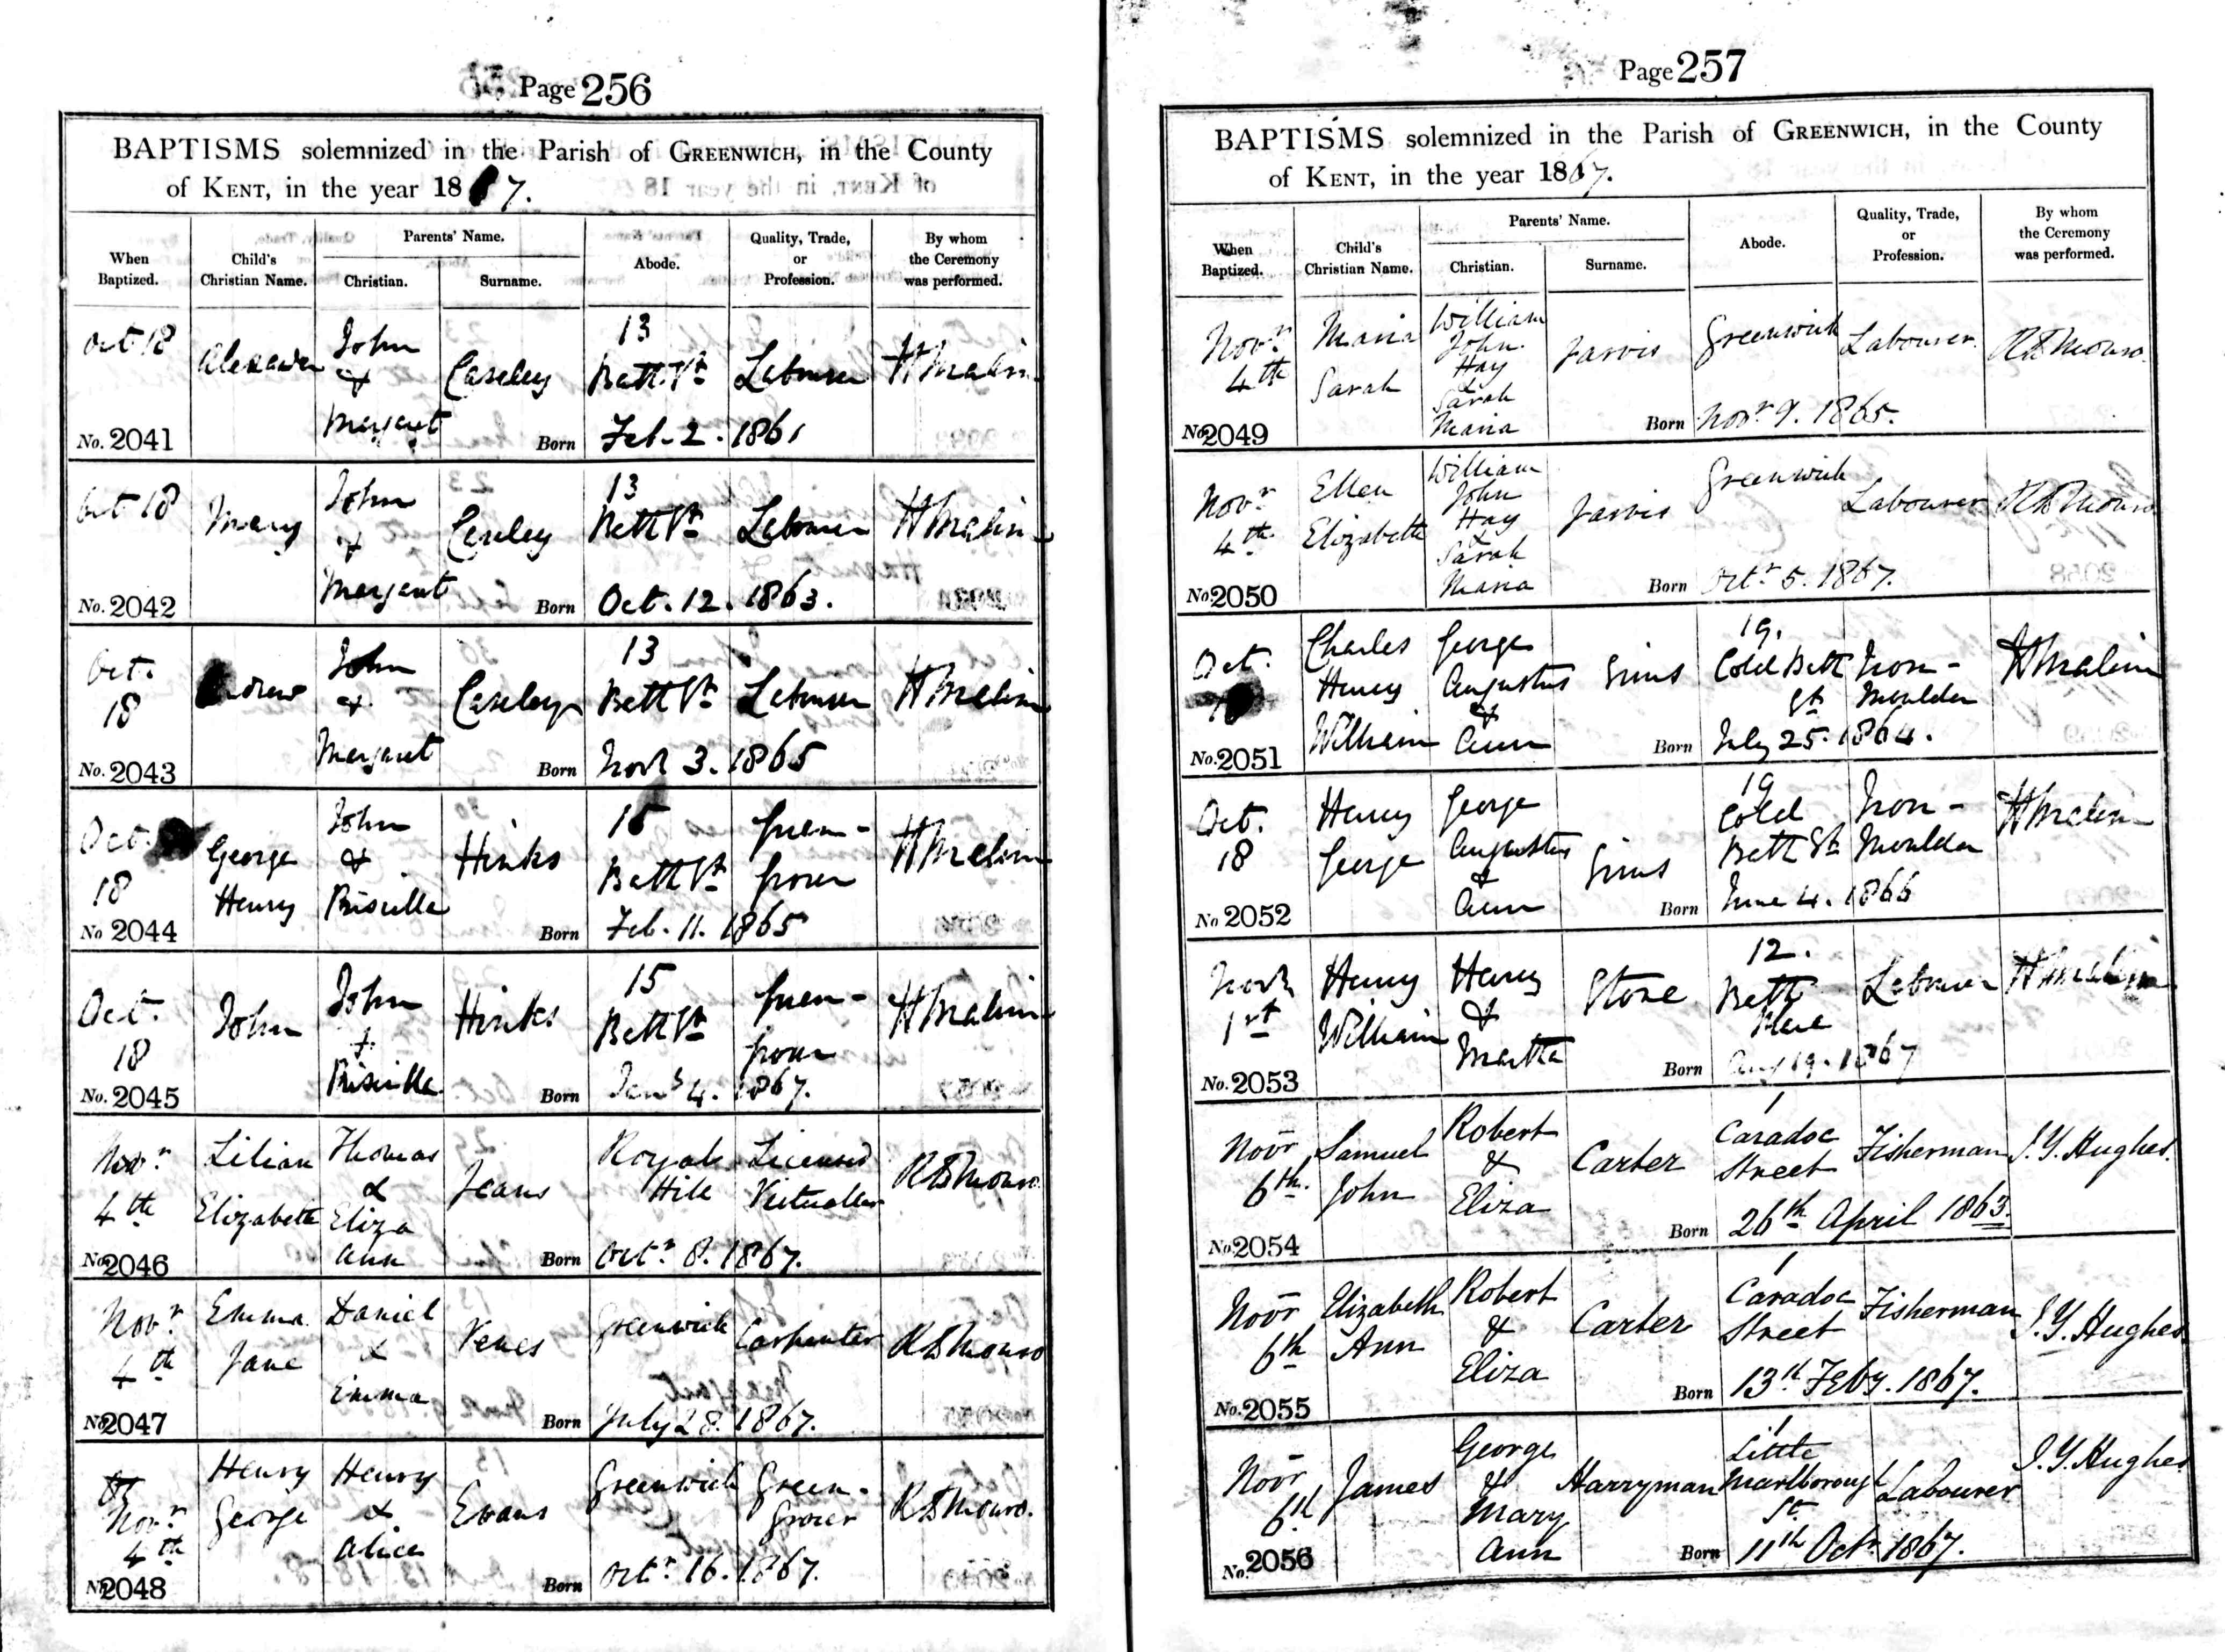 Page 256
BAPTISMS solemnized in the Parish of GREENWICH, in the County
of KENT, in the year 1867.
When Baptized.
Child's Christian Name.
Parents' Name.
Christian.
Surname.
Abode.
Quality, Trade, or Profession.
By whom the Ceremony was performed.
Oct 18
Alexander
John
&
Margaret
Caseley
13
Bett. St
Labourer
H Malim
No. 2041
Born Feb. 2. 1861
Oct 18
Mary
John
&
Margaret
Caseley
13
Bett St
Labourer
H Malim
No. 2042
Born Oct. 12. 1863.
Oct.
18
Andrew
John
&
Margaret
Caseley
13
Bett St
Labourer
H Malim
No. 2043
Born Novr 3. 1865
Oct.
18
George
Henry
John
&
Priscilla
Hinks
15
Bett St
Green-
grocer
H Malim
No 2044
Born Feb. 11. 1865
Oct.
18
John
John
&
Priscilla
Hinks
15
Bett St
Green-
grocer
H Malim
No. 2045
Born Jany 4. 1867.
Novr
4th
Lilian
Elizabeth
Thomas
&
Eliza
Ann
Jeans
Royal
Hill
Licensed
Victualler
R D Monro.
No. 2046
Born Octr 8. 1867.
Novr
4th
Emma
Jane
Daniel
&
Emma
Venes
Greenwich
Carpenter
R D Monro
No. 2047
Born July 28. 1867.
Novr
4th
Henry
George
Henry
&
Alice
Evans
Greenwich
Green-
Grocer
R D Monro.
No. 2048
Born Octr 16. 1867.
Page 257
BAPTISMS solemnized in the Parish of GREENWICH, in the County
of KENT, in the year 1867.
When Baptized.
Child's Christian Name.
Parents' Name.
Christian.
Surname.
Abode.
Quality, Trade, or Profession.
By whom the Ceremony was performed.
Novr
4th
Maria
Sarah
William
John
Hay
&
Sarah
Maria
Jarvis
Greenwich
Labourer.
R D Monro.
No. 2049
Born Novr 9. 1865.
Novr
4th
Ellen
Elizabeth
William
John
Hay
&
Sarah
Maria
Jarvis
Greenwich
Labourer
R D Monro
No. 2050
Born Octr 5. 1867.
Oct.
18
Charles
Henry
William
George
Augustus
&
Ann
Sims
19.
Cold Bett
St
Iron-
Moulder
H Malim
No. 2051
Born July 25. 1864.
Oct.
18
Henry
George
George
Augustus
&
Ann
Sims
19
Cold
Bett St
Iron-
Moulder
H Malim
No 2052
Born June 4. 1866
Novr
1st
Henry
William
Henry
&
Martha
Stone
12.
Bett
Place
Labourer
H Malim
No. 2053
Born Aug 19. 1867
Novr
6th.
Samuel
John
Robert
&
Eliza
Carter
1
Caradoc
Street
Fisherman
J. Y. Hughes.
No. 2054
Born 26th April 1863.
Novr
6th
Elizabeth
Ann
Robert
&
Eliza
Carter
1
Caradoc
Street
Fisherman
J. Y. Hughes
No. 2055
Born 13th Feby. 1867.
Novr
6th
James
George
&
Mary
Ann
Harryman
1
Little
Marlborough
St.
Labourer
J. Y. Hughes
No. 2056
Born 11th Octr 1867.